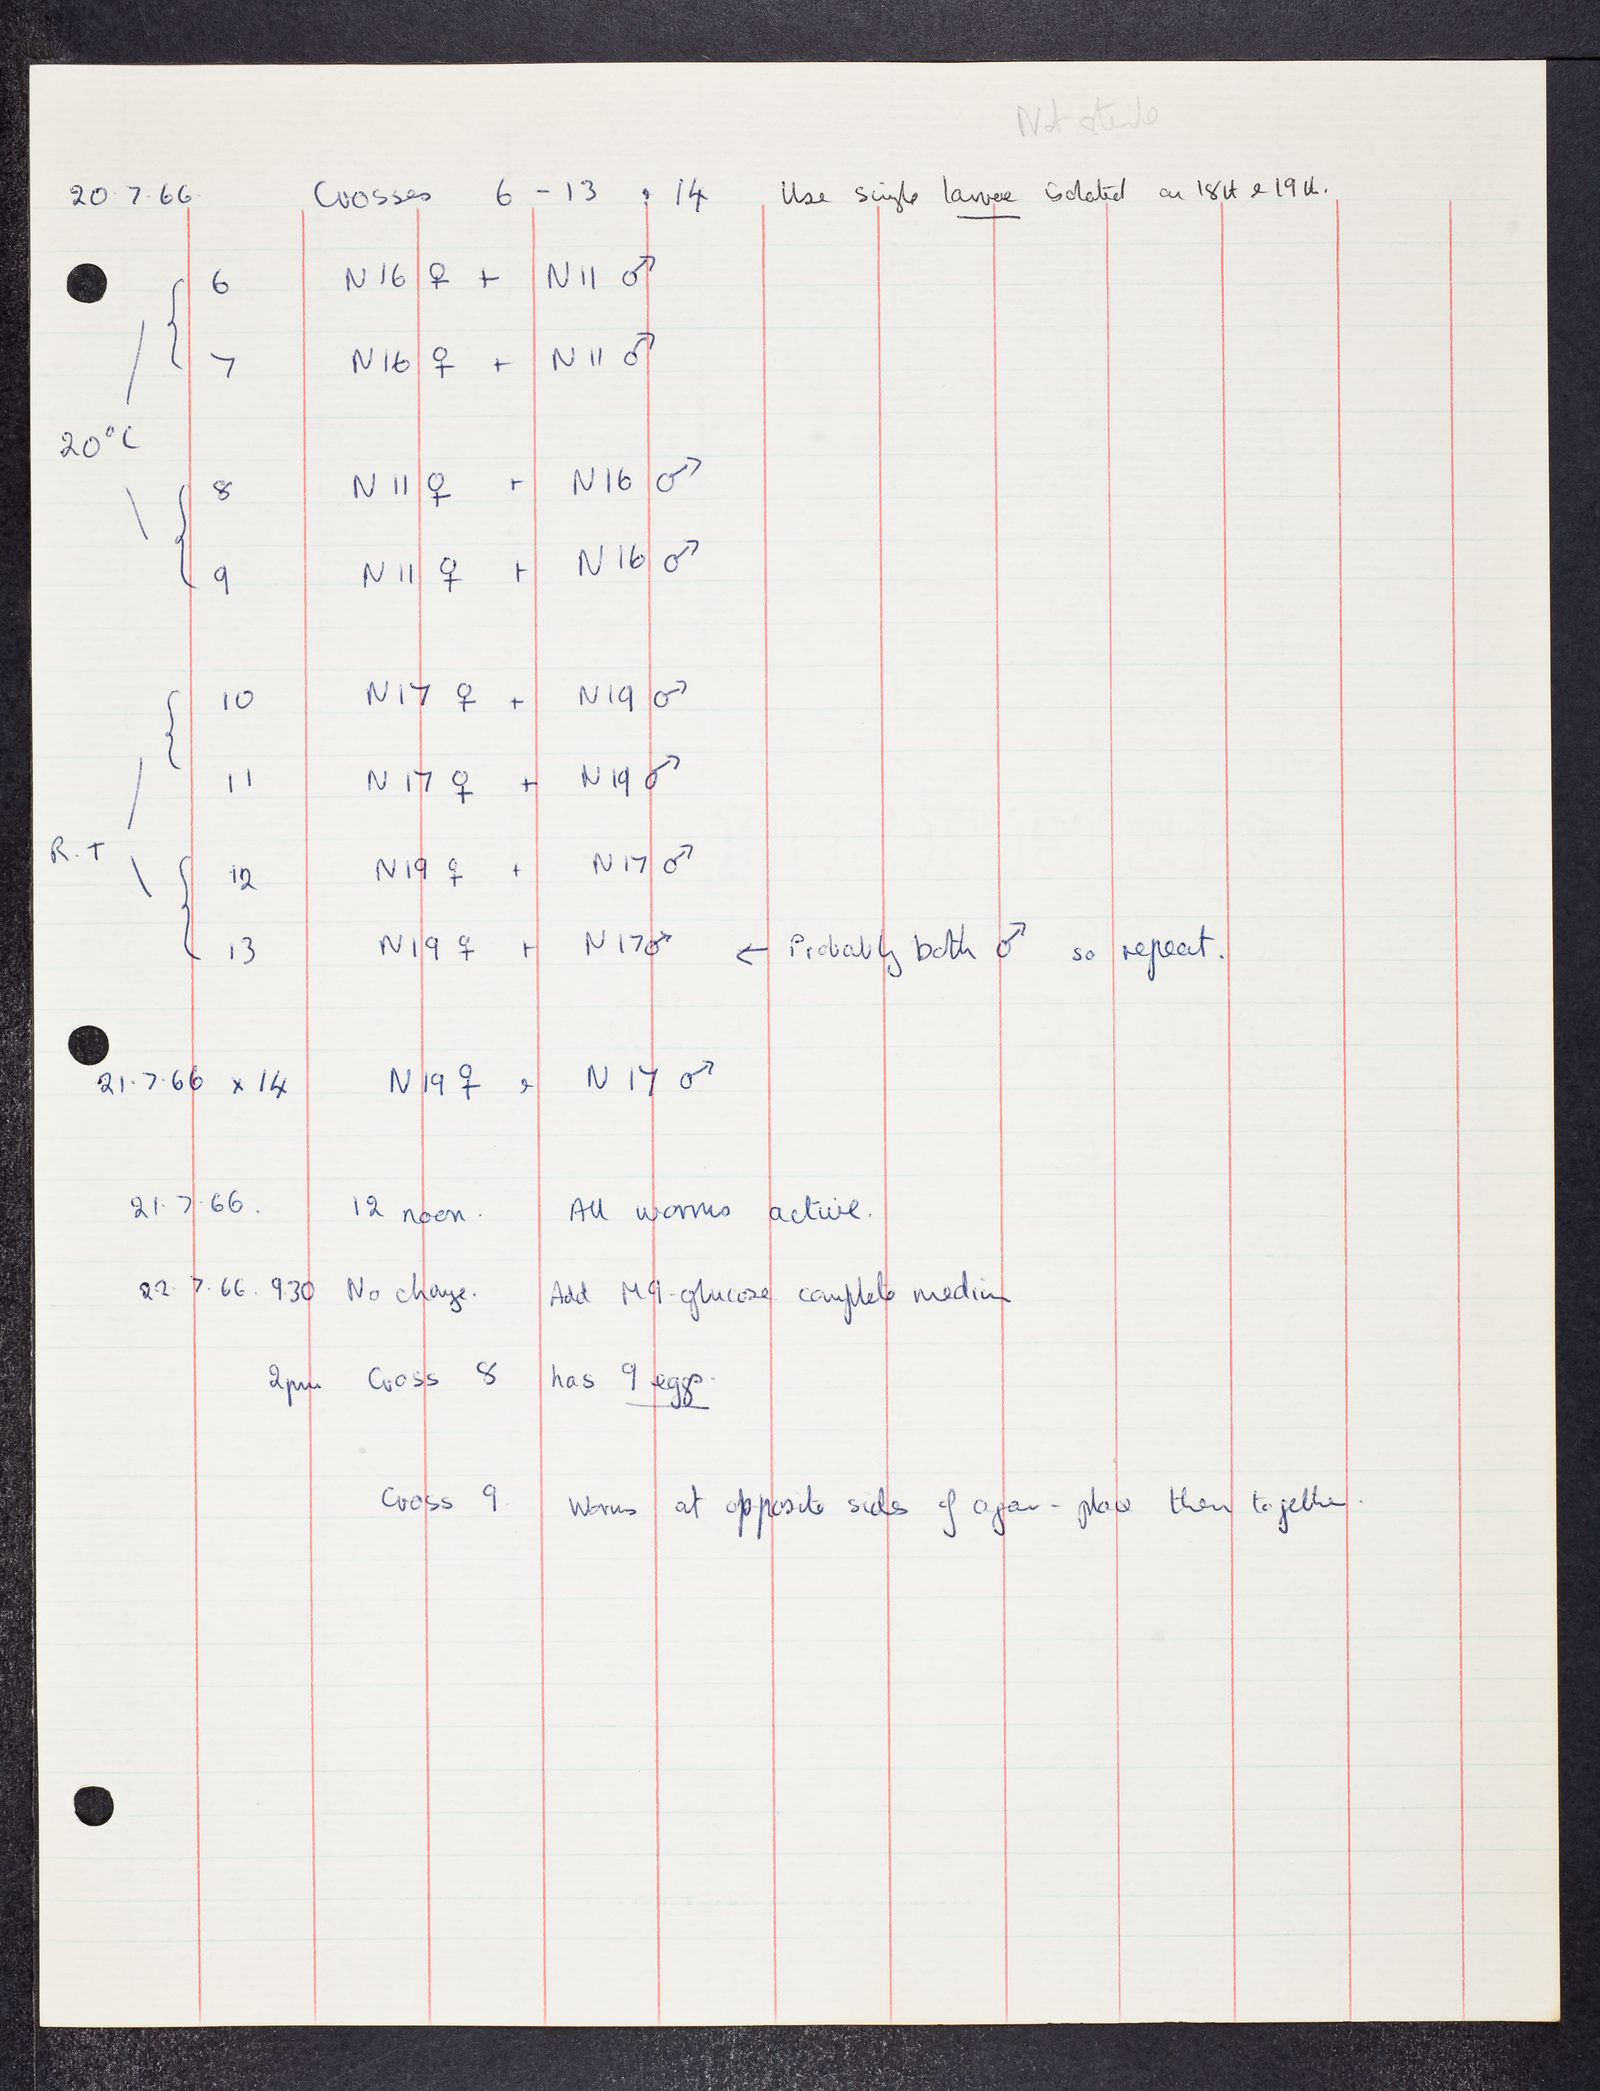 Not sterile
20.7.66. Crosses 6 - 13 & 14 Use single larvae isolated on 18th & 19th.
6 N16 ♀ + N11 ♂
7 N16 ♀ + N11 ♂
20°C
8 N11 ♀ + N16 ♂
9 N11 ♀ + N16 ♂
10 N17 ♀ + N19 ♂
11 N17 ♀ + N19 ♂
R.T
12 N19 ♀ + N17 ♂
13 N19 ♀ + N17 ♂ ← Probably both ♂ so repeat.
21.7.66 x 14 N19 ♀ & N17 ♂
21.7.66. 12 noon. All worms active.
22.7.66. 9.30 No change. Add M9-glucose complete medium
2pm Cross 8 has 9 eggs.
Cross 9 Worms at opposite sides of agar - place them together.